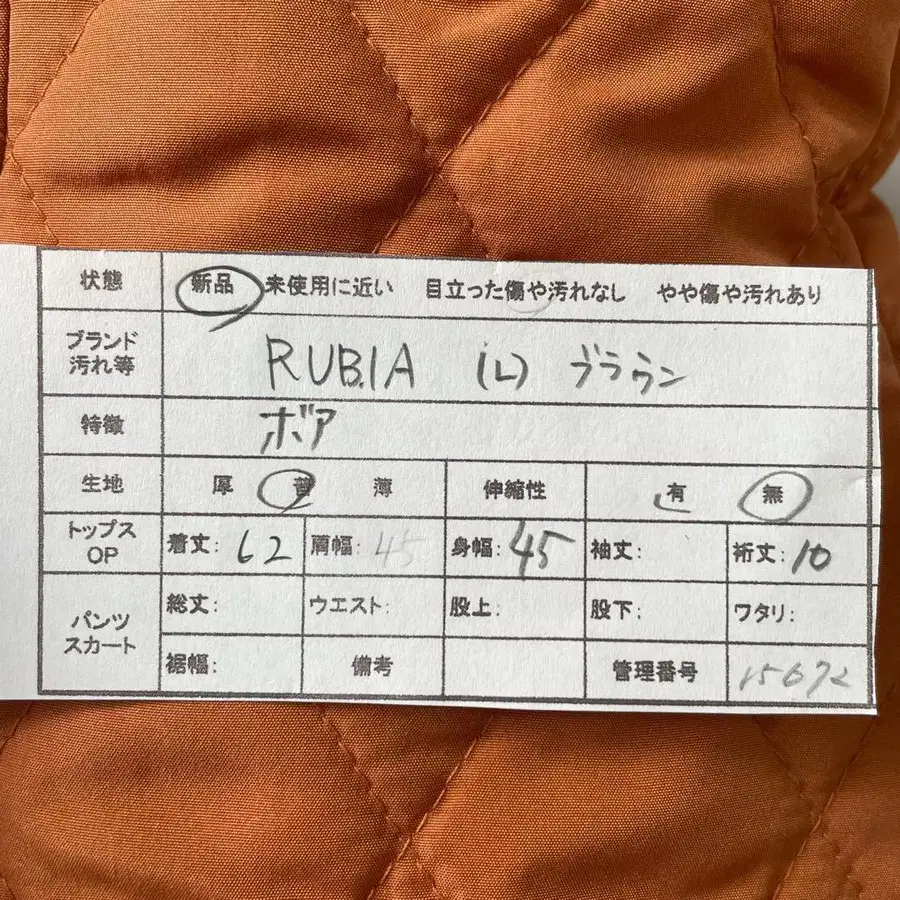 状態 新品 未使用に近い 目立った傷や汚れなし やや傷や汚れあり
ブランド
汚れ等
RUBIA (L) ブラウン
特徴 ボア
生地 厚 普 薄 伸縮性 有 無
トップス
OP
着丈: 62 肩幅: 45 身幅: 45 袖丈: 裄丈: 10
パンツ
スカート
総丈: ウエスト: 股上: 股下: ワタリ:
裾幅: 備考 管理番号 15672